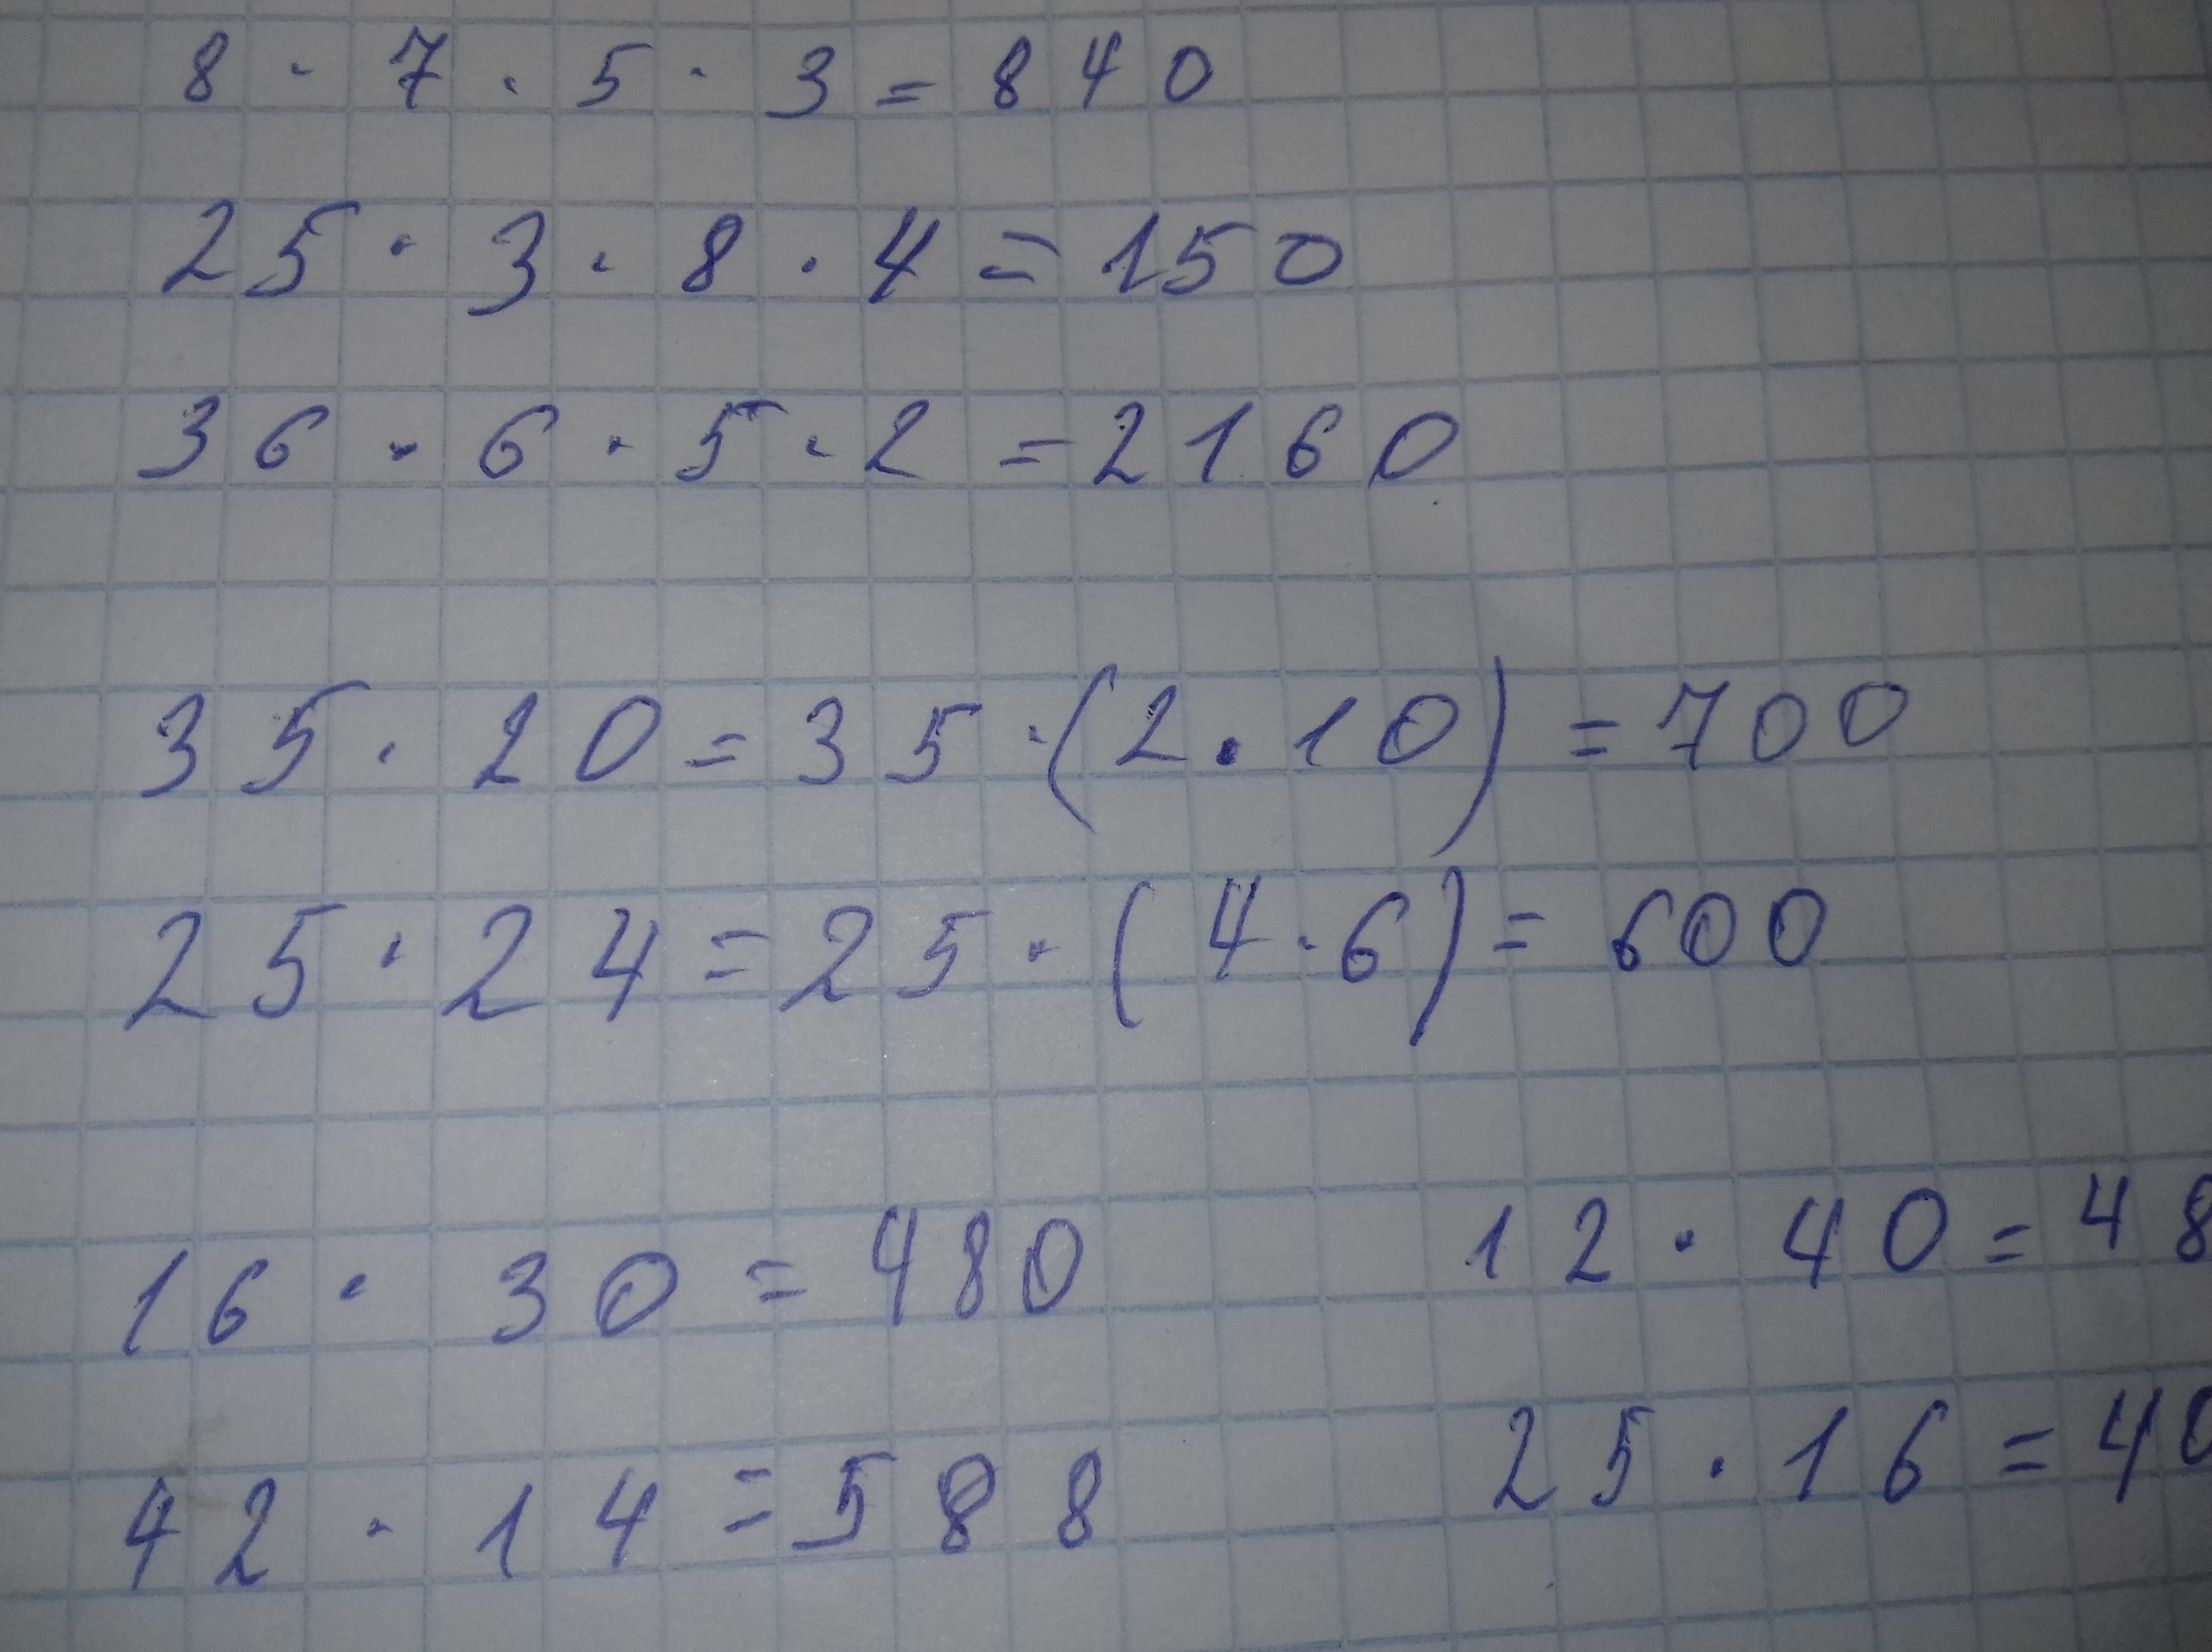 8 · 7 · 5 · 3 = 840
25 · 3 · 8 · 4 = 150
36 · 6 · 5 · 2 = 2160
35 · 20 = 35 · (2 · 10) = 700
25 · 24 = 25 · (4 · 6) = 600
16 · 30 = 480 12 · 40 = 48
42 · 14 = 588 25 · 16 = 40